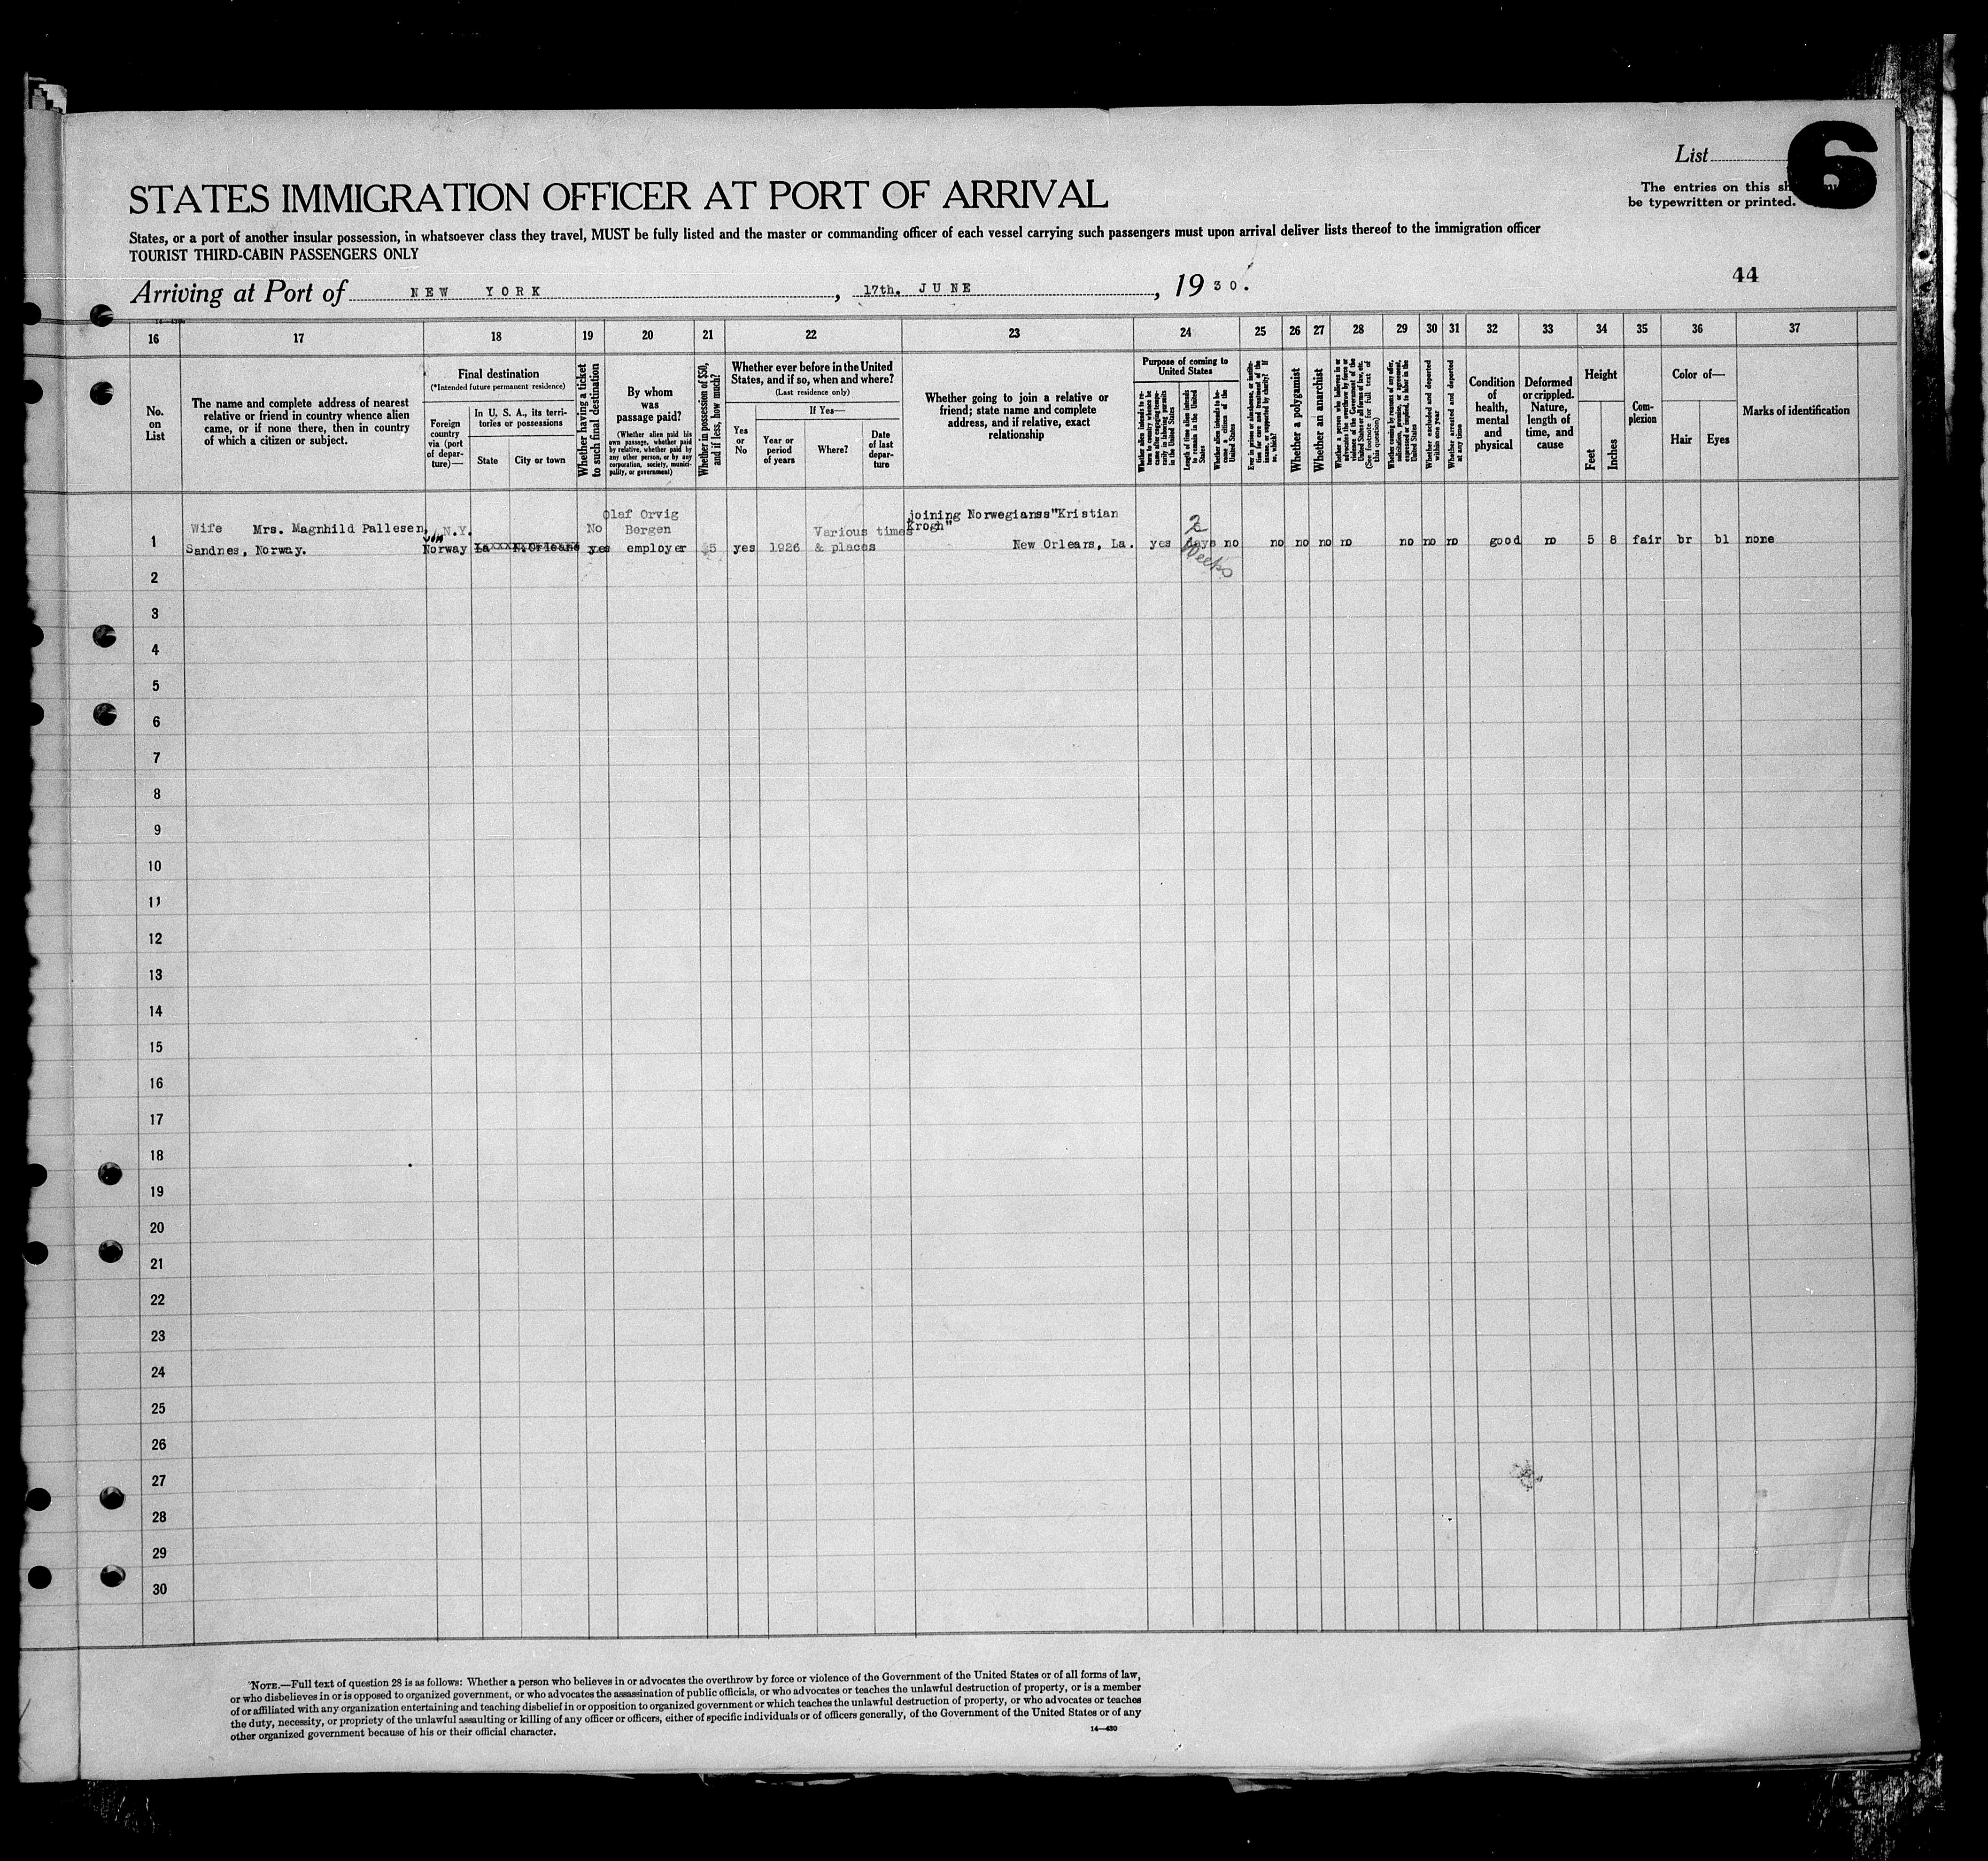 List
6
The entries on this sh
be typewritten or printed.
STATES IMMIGRATION OFFICER AT PORT OF ARRIVAL
States, or a port of another insular possession, in whatsoever class they travel, MUST be fully listed and the master or commanding officer of each vessel carrying such passengers must upon arrival deliver lists thereof to the immigration officer
TOURIST THIRD-CABIN PASSENGERS ONLY
44
Arriving at Port of NEW YORK, 17th. JUNE, 1930.
16 17 18 19 20 21 22 23 24 25 26 27 28 29 30 31 32 33 34 35 36 37
No.
on
List
The name and complete address of nearest
relative or friend in country whence alien
came, or if none there, then in country
of which a citizen or subject.
Final destination
(*Intended future permanent residence)
Foreign
country
via (port
of depar-
ture)—
In U. S. A., its terri-
tories or possessions
State
City or town
Whether having a ticket
to such final destination
By whom
was
passage paid?
(Whether alien paid his
own passage, whether paid
by relative, whether paid by
any other person, or by any
corporation, society, munici-
pality, or government)
Whether in possession of $50,
and if less, how much?
Whether ever before in the United
States, and if so, when and where?
(Last residence only)
Yes
or
No
If Yes—
Year or
period
of years
Where?
Date
of last
depar-
ture
Whether going to join a relative or
friend; state name and complete
address, and if relative, exact
relationship
Purpose of coming to
United States
Whether alien intends to re-
turn to country whence he
came after engaging tempo-
rarily in laboring pursuits
in the United States
Length of time alien intends
to remain in the United
States
Whether alien intends to be-
come a citizen of the
United States
Ever in prison or almshouse, or institu-
tion for care and treatment of the
insane, or supported by charity? If
so, which?
Whether a polygamist
Whether an anarchist
Whether a person who believes in or
advocates the overthrow by force or
violence of the Government of the
United States or all forms of law, etc.
(See footnote for full text of
this question)
Whether coming by reason of any offer,
solicitation, promise, or agreement,
expressed or implied, to labor in the
United States
Whether excluded and deported
within one year
Whether arrested and deported
at any time
Condition
of
health,
mental
and
physical
Deformed
or crippled.
Nature,
length of
time, and
cause
Height
Feet
Inches
Com-
plexion
Color of—
Hair
Eyes
Marks of identification
Olaf Orvig
joining Norwegianss"Kristian
Wife Mrs. Magnhild Pallesen, N.Y. No Bergen Various times Krogh" 2
1 Sandnes, Norway. Norway La N.Orleans yes employer $5 yes 1926 & places New Orleans, La. yes days no no no no no no no no good no 5 8 fair br bl none
Weeks
2
3
4
5
6
7
8
9
10
11
12
13
14
15
16
17
18
19
20
21
22
23
24
25
26
27
28
29
30
NOTE.—Full text of question 28 is as follows: Whether a person who believes in or advocates the overthrow by force or violence of the Government of the United States or of all forms of law,
or who disbelieves in or is opposed to organized government, or who advocates the assassination of public officials, or who advocates or teaches the unlawful destruction of property, or is a member
of or affiliated with any organization entertaining and teaching disbelief in or opposition to organized government or which teaches the unlawful destruction of property, or who advocates or teaches
the duty, necessity, or propriety of the unlawful assaulting or killing of any officer or officers, either of specific individuals or of officers generally, of the Government of the United States or of any
other organized government because of his or their official character.
14—430